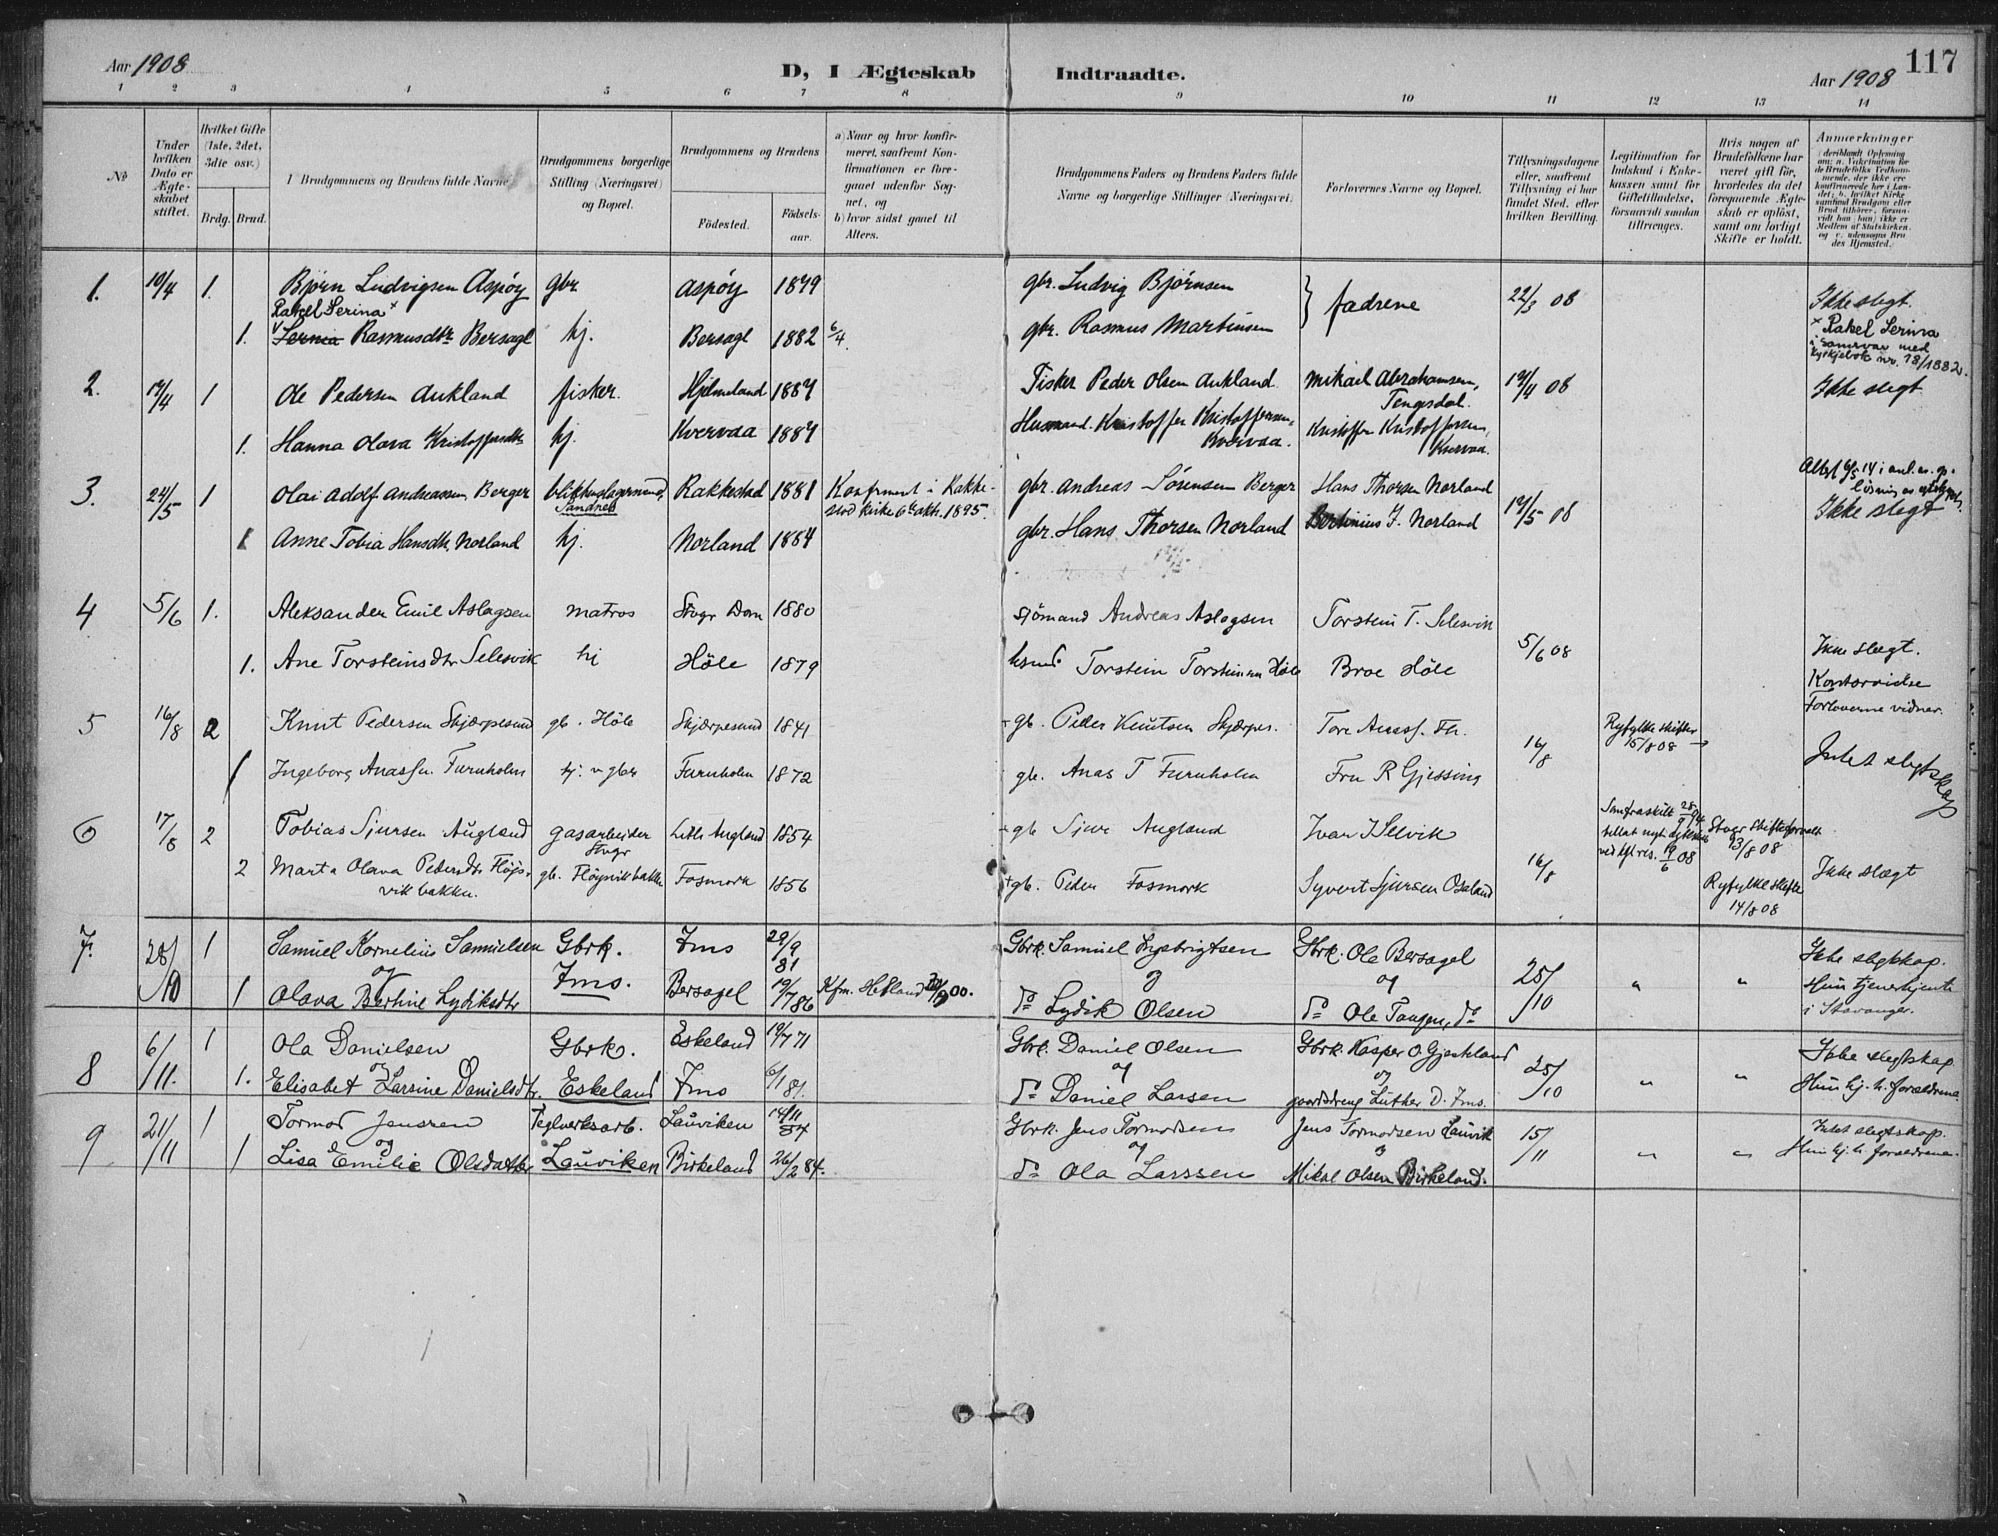 Aar 1908
D, I Ægteskab Indtraadte.
Aar 1908 117
1 2 3 4 5 6 7 8 9 10 11 12 13 14
No
Under hvilken Dato er Ægteskabet stiftet.
Hvilket Gifte (1ste, 2det, 3die osv.)
Brdg. Brud.
Brudgommens og Brudens fulde Navne
Brudgommens borgerlige Stilling (Næringsvei) og Bopæl.
Brudgommens og Brudens
Fødested. Fødselsaar.
a) Naar og hvor konfirmeret, saafremt Konfirmationen er foregaaet udenfor Sognet, og
b) hvor sidst gaaet til Alters.
Brudgommens Faders og Brudens Faders fulde Navne og borgerlige Stillinger (Næringsvei)
Forlovernes Navne og Bopæl.
Tillysningsdagene eller, saafremt Tillysning ei har fundet Sted, efter hvilken Bevilling.
Legitimation for Indskud i Enkekassen samt for Giftetilladelse, forsaavidt saadan tiltrænges.
Hvis nogen af Brudefolkene har været gift før, hvorledes da det foregaaende Ægteskab er opløst, samt om lovligt Skifte er holdt.
Anmærkninger
1. 10/4 1. Bjørn Ludvigsen Aspøy gbr. Aspøy 1879 gbr. Ludvig Bjørnsen } fadrene 22/3 08 Ikke slegt.
Rakel Serina x
1. Rasmusdtr. Bersagl hj. Bersagl 1882 6/4 gbr. Rasmus Martinsen x Rakel Serina
i samsvar med
kyrkjebok nr. 18/1882.
2. 1 Ole Pedersen Aukland fisker. Hjelmeland 1887 Fisker Peder Olsen Aukland. Mikael Abrahamsen, Tengesdal. 08 Ikke slegt
1. Hanna Olava Kristoffersdtr. hj. Kvervaa 1887 Husmand. Kristoffer Kristoffersen, Kvervaa. Kristoffer Kristoffersen, Kvervaa.
3. 24/5 1 Olai Adolf Andreassen Berger Sandnes Rakkestad 1881 Konfirment i Rakkestad kirke 6te okt. 1895. gbr. Andreas Sørensen Berger Hans Thorsen Norland 08 Ikke slegt
1 Anne Tobia Hansdtr. Norland hj. Norland 1884 gbr. Hans Thorsen Norland Bertinius J. Norland
4 5/6 1. Aleksander Emil Aslagsen matros Stvgr Dom 1880 sjömand Andreas Aslagsen Torstein T. Selesvik 5/6 08
1. Ane Torsteinsdtr Selesvik hj Höle 1879 Torstein Torsteinsen Höle Broe Höle Ikke slegt.
Forloverne vidner.
5 16/8 2 Knut Pedersen Skjærpesund gb. Höle Skjærpesund 1841 + gb. Peder Knutsen Skjærpes. Tore Anass. Fh. 16/8 Ryfylke skifter 15/8 08
1 Ingeborg Anassn. Furuholm Furuholm 1872 gb. Anas T Furuholm Fru R Gjessing Intet slegtskap
6 17/8 2 Tobias Sjursen Augland gasarbeider Stvgr Augland 1854 + gb Sjur Augland Ivar I Selvik Stvgr skifteforvalt 13/8 08
2 Marta Olava Pedersdtr. Fløysvikbakken. gb. Fløysvikbakke Fosmork 1856 + gb. Peder Fosmork Syvert Sjursen Osaland 16/8 Ryfylke skifte 14/8 08 Ikke slægt
7. 28/10 1 Samuel Kornelius Samuelsen Gbrk. Ims 29/9 81 Gbrk. Samuel Ingebrigtsen Gbrk. Ole Bersagel 25/10 " " Ikke slegtskap.
og Ims. og og Hun tjenestejente
1 Olava Bertine Lydiksdtr Bersagel 19/7 86 Kfm. Hetland 00. do Lydik Olsen do Ole do i Stavanger.
8 6/11. 1 Ola Danielsen Gbrk. Eskeland 19/7 71 Gbrk. Daniel Olsen Gbrk. Kasper O. 25/10 " " Ikke slegtskap.
og og og
1. Elisabet Larsine Danielsdtr. Eskeland Ims 6/1 81. do Daniel Larsen gaardsdreng Luther D. Ims. Hun hj. h. forældrene
9 21/11 1 Tormod Jenssen Teglverksarb. Lauviken 14/11 Gbrk. Jens Tormodsen Jens Tormodsen Lauvik 15/11 " " Intet slegtskap.
og og og
1 Lisa Emilie Olsdatter Lauviken Birkeland 26/2 84. do Ola Larssen Mikal Olsen Birkeland. Hun hj. h. forældrene.